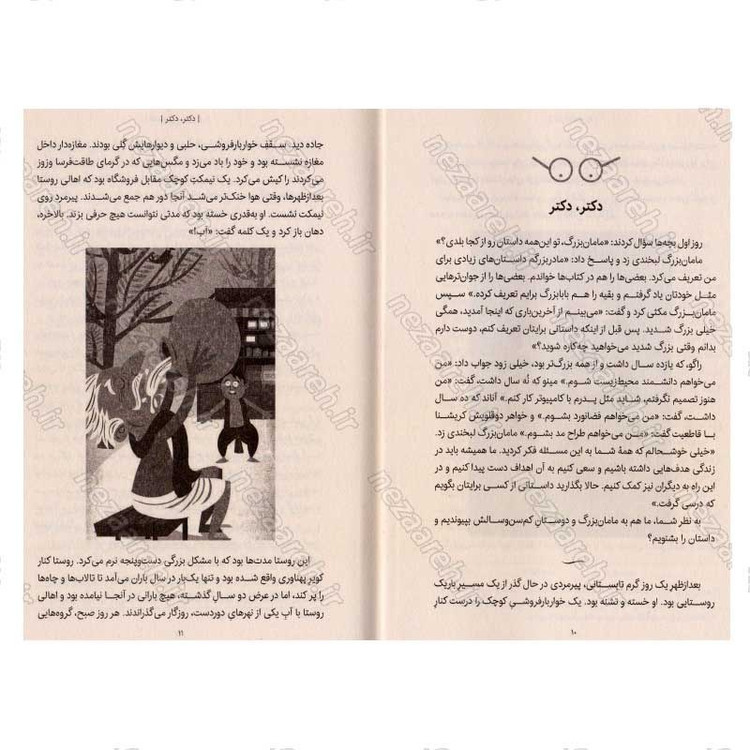 دکتر، دکتر
روز اول بچه‌ها سؤال کردند: «مامان‌بزرگ، تو این‌همه داستان رو از کجا بلدی؟»
مامان‌بزرگ لبخندی زد و پاسخ داد: «مادربزرگم داستان‌های زیادی برای
من تعریف می‌کرد. بعضی‌ها را هم در کتاب‌ها خواندم. بعضی‌ها را از جوان‌ترهایی
مثـل خودتان یاد گرفتـم و بقیه را هـم بابابزرگ برایم تعریف کرده.» سـپس
مامان‌بـزرگ مکثی کرد و گفت: «می‌بینم از آخرین‌باری که اینجا آمدید، همگی
خیلی بزرگ شـدید. پس قبل از اینکه داستانی برایتان تعریف کنم، دوست دارم
بدانم وقتی بزرگ شدید می‌خواهید چه‌کاره شوید؟»
راگو، که یازده سال داشت و از همه بزرگ‌تر بود، خیلی زود جواب داد: «من
می‌خواهم دانشمند محیط‌زیست شـوم.» مینو که نُه سال داشت، گفت: «من
هنوز تصمیم نگرفتم، شـاید مثل پدرم با کامپیوتر کار کنم.» آناند که ده سـال
داشـت، گفت: «من می‌خواهم فضانورد بشـوم.» و خواهر دوقلویش کریشـنا
بـا قاطعیت گفت: «مـن می‌خواهم طراح مد بشـوم.» مامان‌بـزرگ لبخندی زد.
«خیلی خوشـحالم که همۀ شـما به این مسـئله فکر کردید. ما همیشه باید در
زندگی هدف‌هایی داشته باشیم و سعی کنیم به آن اهداف دست پیدا کنیم و در
این راه به دیگران نیز کمک کنیم. حالا بگذارید داستانی از کسـی برایتان بگویم
که درسی گرفت.»
به نظر شـما، ما هم به مامان‌بزرگ و دوسـتان کم‌سن‌وسـالش بپیوندیم و
داستان را بشنویم؟
بعدازظهرِ یک روز گرم تابسـتانی، پیرمردی در حال گذر از یک مسـیرِ باریک
روسـتایی بود. او خسـته و تشـنه بود. یک خواربارفروشیِ کوچک را درست کنار
۱۰
| دکتر، دکتر |
جاده دید. سـقف خواربارفروشـی، حلبی و دیوارهایش گِلی بودند. مغازه‌دار داخل
مغازه نشسـته بود و خود را باد می‌زد و مگس‌هایی که در گرمای طاقت‌فرسا وزوز
می‌کردند را کیش می‌کرد. یک نیمکتِ کوچک مقابل فروشگاه بود که اهالی روستا
بعدازظهرها، وقتی هوا خنک‌تر می‌شد آنجا دور هم جمع می‌شدند. پیرمرد روی
نیمکت نشسـت. او به‌قدری خسـته بود که مدتی نتوانست هیچ حرفی بزند. بالاخره،
دهان باز کرد و یک کلمه گفت: «آب!»
این روستا مدت‌ها بود که با مشکل بزرگی دست‌وپنجه نرم می‌کرد. روستا کنار
کویرِ پهناوری واقع شـده بود و تنها یک‌بار در سال باران می‌آمد تا تالاب‌ها و چاه‌ها
را پر کند، اما در عرض دو سـالِ گذشـته، هیچ بارانی در آنجـا نیامده بود و اهالی
روستا با آبِ یکی از نهرهای دوردست، روزگار می‌گذراندند. هر روز صبح، گروه‌هایی
۱۱
nezaareh.ir